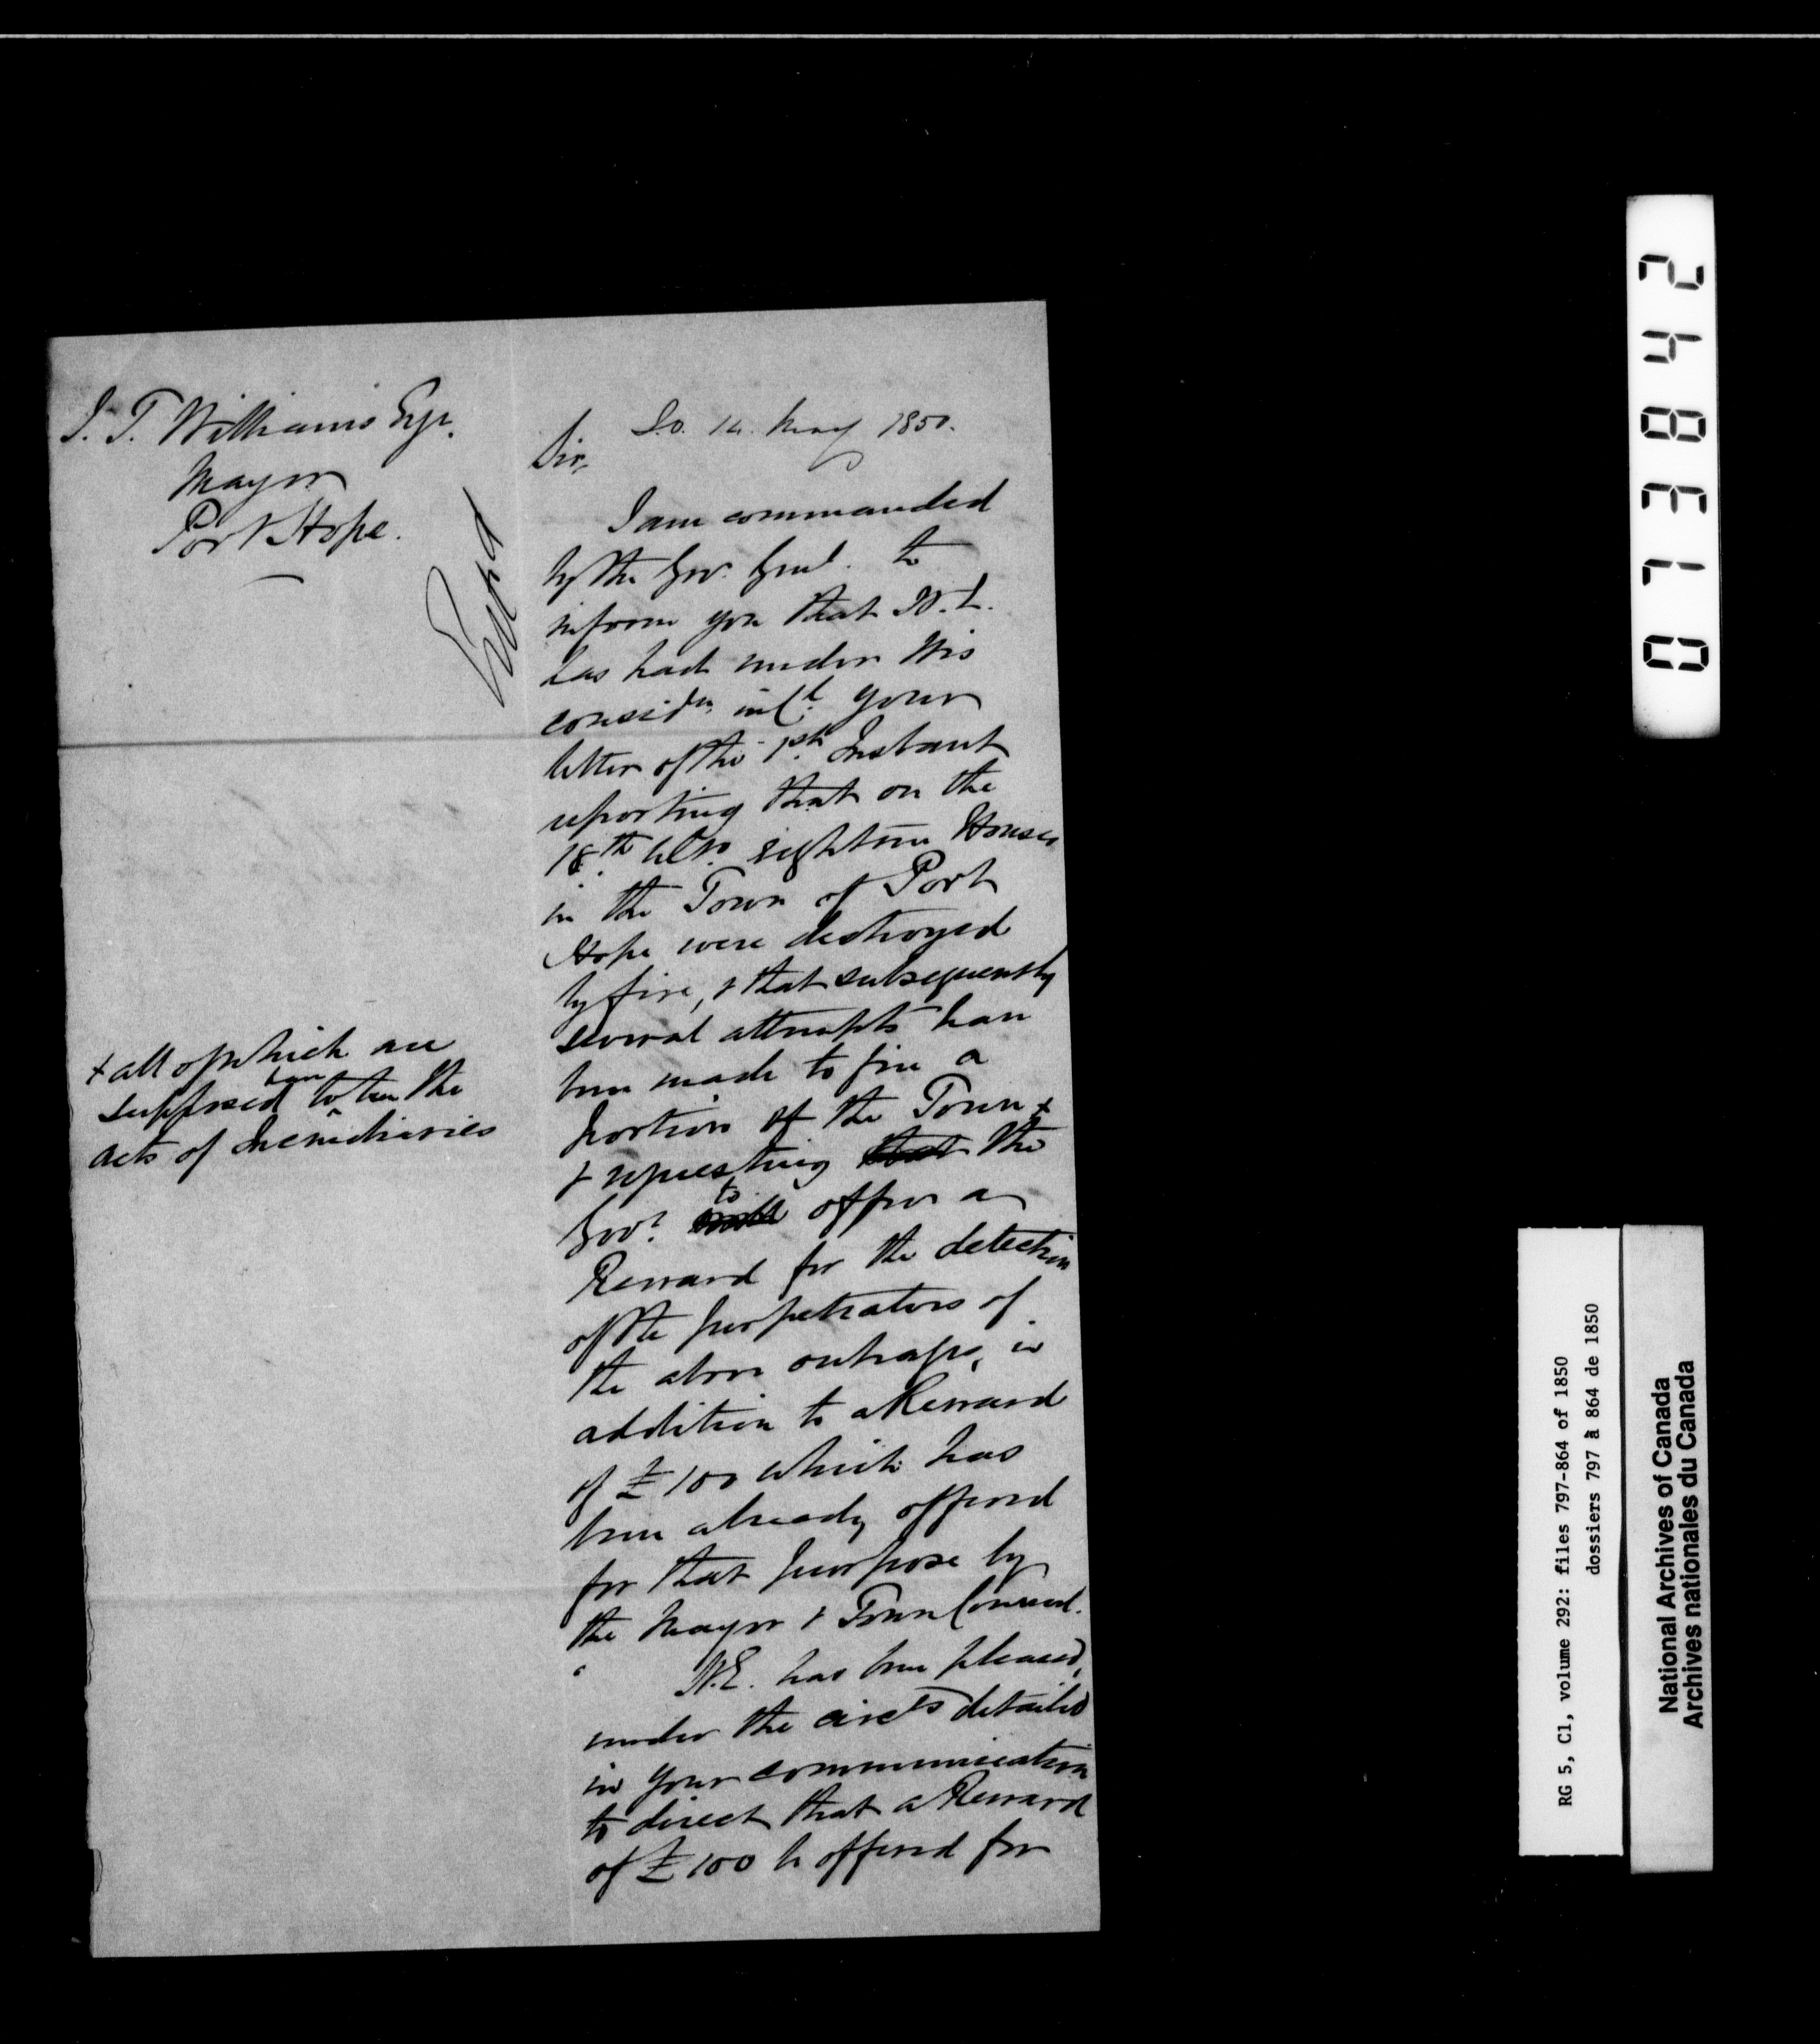 J. T. Williams Esqr.
Mayor
Port Hope.
Entd
S.O. 14. May 1850.
Sir,
I am commanded
by the Gov. Genl. to
inform you that H.E.
has had under His
considn. in Cl. your
letter of the 1st. Instant
reporting that on the
18th. Ulto. eighteen Houses
in the Town of Port
Hope were destroyed
by fire, & that subsequently
several attempts have
been made to fire a
portion of the Town +
+ all of which are
supposed to have been the
acts of Incendiaries
& requesting that the
Govt. will to offer a
Reward for the detection
of the perpetrators of
the above outrages, in
addition to a Reward
of £100 which has
been already offered
for that purpose by
the Mayor & Town Council.
H.E. has been pleased,
under the circts detailed
in your communication
to direct that a Reward
of £100 be offered for
073842
RG 5, C1, volume 292: files 797-864 of 1850
dossiers 797 à 864 de 1850
National Archives of Canada
Archives nationales du Canada